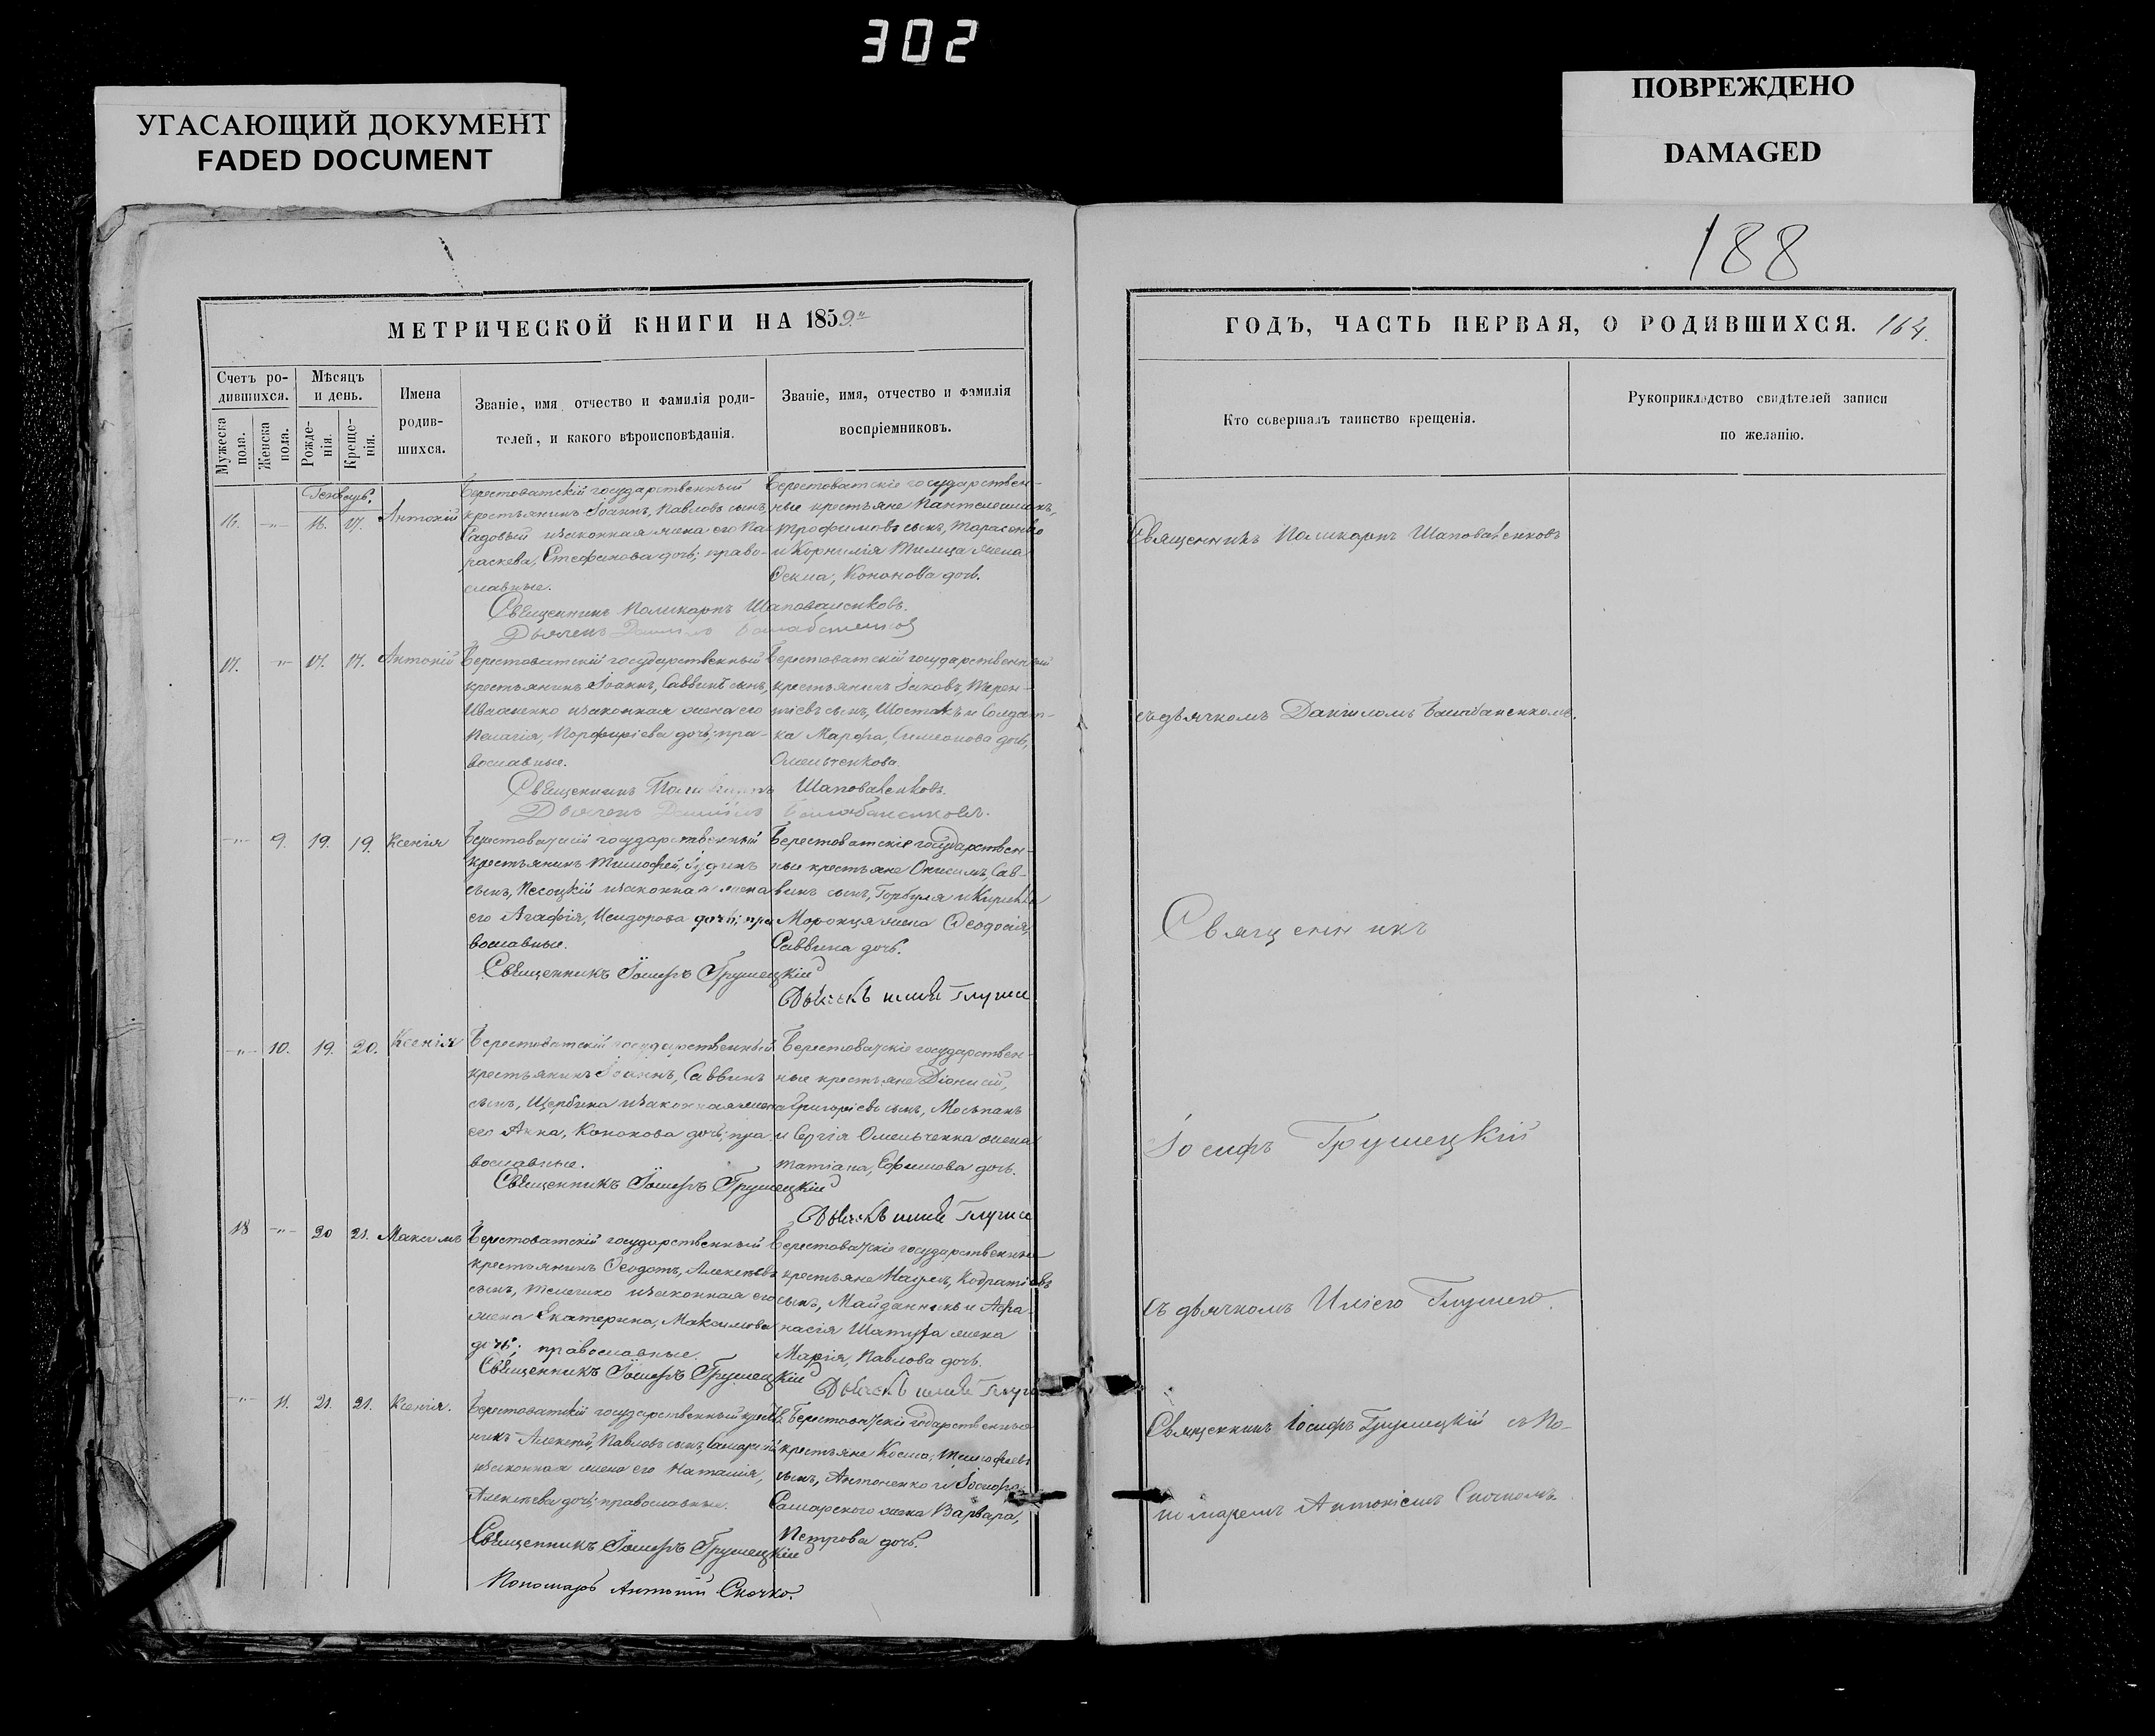 302
УГАСАЮЩИЙ ДОКУМЕНТ
FADED DOCUMENT
ПОВРЕЖДЕНО
DAMAGED
188
МЕТРИЧЕСКОЙ КНИГИ НА 1859.
ГОДЪ, ЧАСТЬ ПЕРВАЯ, О РОДИВШИХСЯ. 164.
Счетъ ро-
дившихся.
Мѣсяцъ
и день.
Мужеска
пола.
Женска
пола.
Рожде-
нія.
Креще-
нія.
Имена
родив-
шихся.
Званіе, имя, отчество и фамилія роди-
телей, и какого вѣроисповѣданія.
Званіе, имя, отчество и фамилія
воспріемниковъ.
Кто совершалъ таинство крещенія.
Рукоприкладство свидѣтелей записи
по желанію.
16. -"- 16. 17. Антоній
Берестоватскій государственный
крестьянинъ Іоаннъ, Павловъ сынъ,
Садовый и законная жена его Па-
раскева, Стефанова дочь; право-
славные.
Берестоватскіе государствен-
ные крестьяне Пантелеимонъ,
Трофимовъ сынъ, Тарасенко
и Корнилія жена
Кононова дочь.
Священникъ Поликарпъ Шаповаленковъ.
Дьячекъ
Священникъ Поликарпъ Шаповаленковъ
17. -"- 17. 17. Антоній
Берестоватскій государственный
крестьянинъ Іоаннъ, Саввинъ сынъ,
Иваненко и законная жена его
Пелагія, Порфиріева дочь; пра-
вославные.
Берестоватскій государственный
крестьянинъ Іаковъ, Терен-
тіевъ сынъ, Шостакъ и Солдат-
ка Марфа, Симеонова дочь,
Омельченкова.
Священникъ Поликарпъ Шаповаленковъ.
Дьячекъ Даніилъ Балабаненковъ.
съ дьячкомъ Даніиломъ Балабаненкомъ.
-"- 9. 19. 19. Ксенія
Берестоватскій государственный
крестьянинъ Тимофей, Іудинъ
сынъ, Песоцкій и законная жена
его Агафія, Исидорова дочь; пра-
вославные.
Берестоватскіе государствен-
ные крестьяне Онисимъ, Сав-
винъ сынъ, Горбуля и Кирилла
жена Феодосія,
Саввина дочь.
Священникъ Іосифъ Грушецкій
Дьячекъ
Священникъ
-"- 10. 19. 20. Ксенія
Берестоватскій государственный
крестьянинъ Іоаннъ, Саввинъ
сынъ, Щербина и законная жена
его Анна, Кононова дочь; пра-
вославные.
Берестоватскіе государствен-
ные крестьяне Діонисій,
Григоріевъ сынъ, Мосьпанъ
и Сергія Омельченка жена
Татіана, Ефимова дочь.
Священникъ Іосифъ Грушецкій
Дьячекъ
Іосифъ Грушецкій
18 -"- 20 21. Максимъ
Берестоватскій государственный
крестьянинъ Феодотъ, Алексѣевъ
сынъ, и законная его
жена Екатерина, Максимова
дочь; православные.
Берестоватскіе государственные
крестьяне
сынъ, Майданникъ и Афа-
насія жена
Марія, Павлова дочь.
Священникъ Іосифъ Грушецкій
Дьячекъ
съ дьячкомъ
-"- 11. 21. 21. Ксенія.
Берестоватскій государственный
Алексѣй, Павловъ сынъ, Самарскій
и законная жена его Наталія,
Алексѣева дочь; православные.
Берестоватскіе
крестьяне Косма, Тимофеевъ
сынъ, Антоненко и Іосифа
Самарского жена Варвара,
Петрова дочь.
Священникъ Іосифъ Грушецкій
Пономарь Антоній Сночко.
Священникъ Іосифъ Грушецкій съ По-
номаремъ Антоніемъ Сночкомъ.